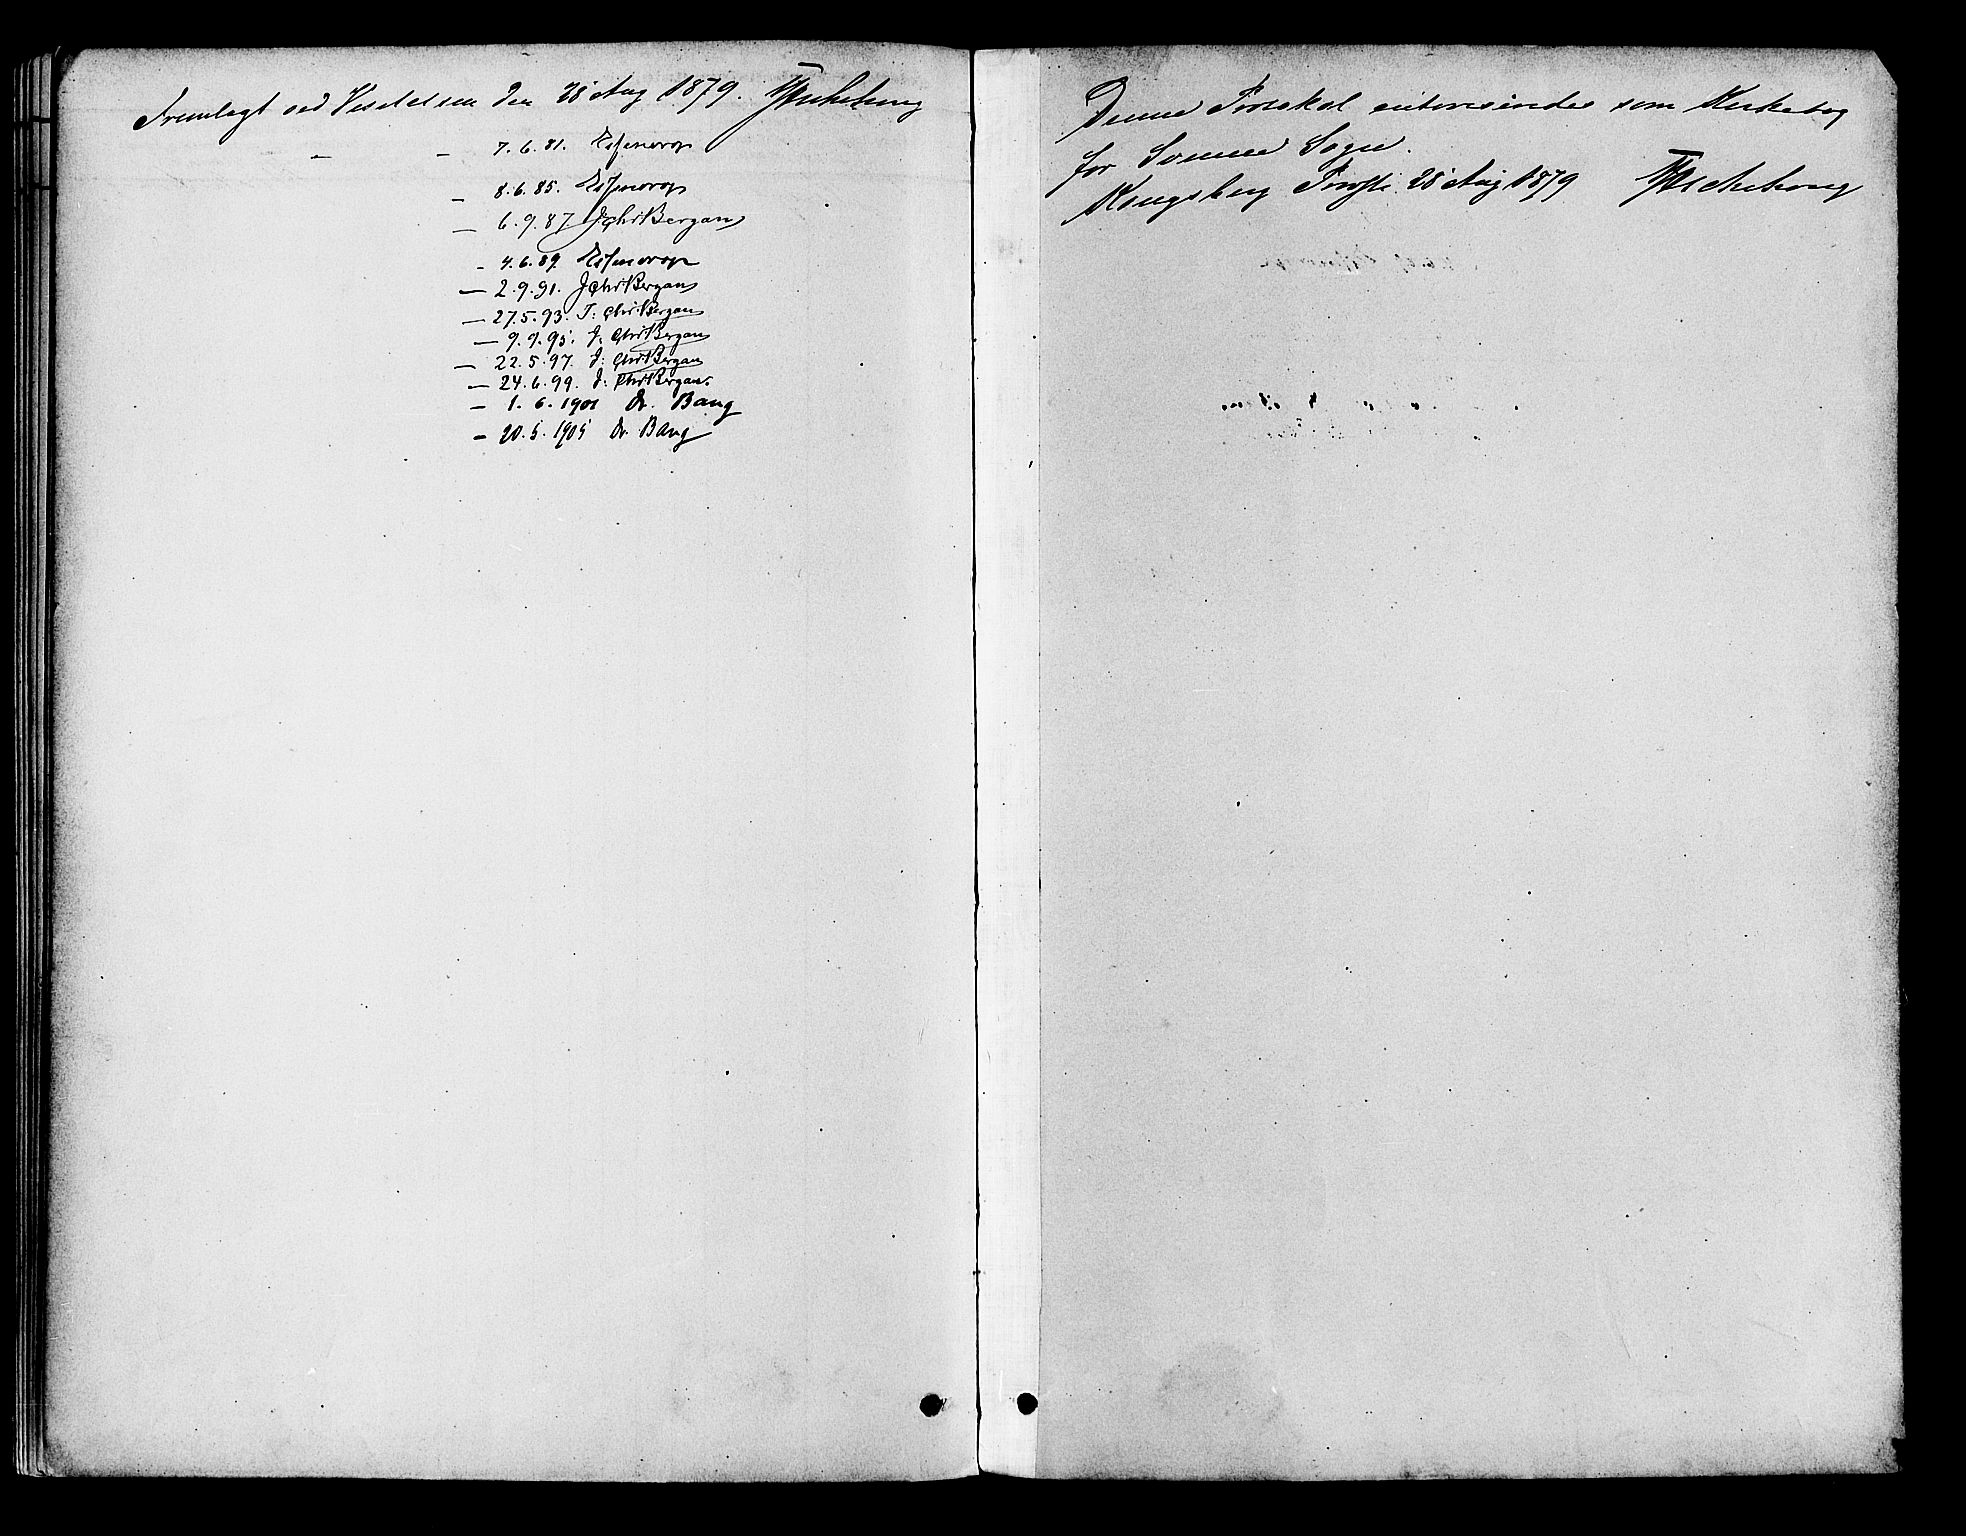 Fremlagt ved Visitatsen den 28 Aug 1879.
– – 7.6.81. Essendrop
– 8.6.85. Essendrop
– 6.9.87. J Chr Bergan
– 4.6.89. Essendrop
– 2.9.91. J Chr Bergan
– 27.5.93. J: Chr: Bergan
– 9.9.95. J: Chr Bergan
– 22.5.97. J: Chr Bergan
– 24.6.99. J: Chr Bergan.
– 1.6.1901 Dr. Bang
– 20.5.1905 Dr. Bang
Denne Protokol autoriseredes som Kirkebog
for Sogn.
Kongsberg Provsti 28 Aug 1879